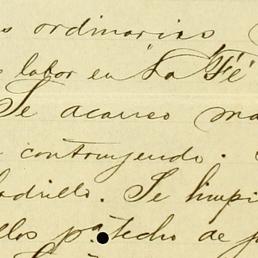 s ordinarios
labor en "La Fé"
Se acarreo ma
contruyendo.
adrillo. Se limpi
llos pª techo de